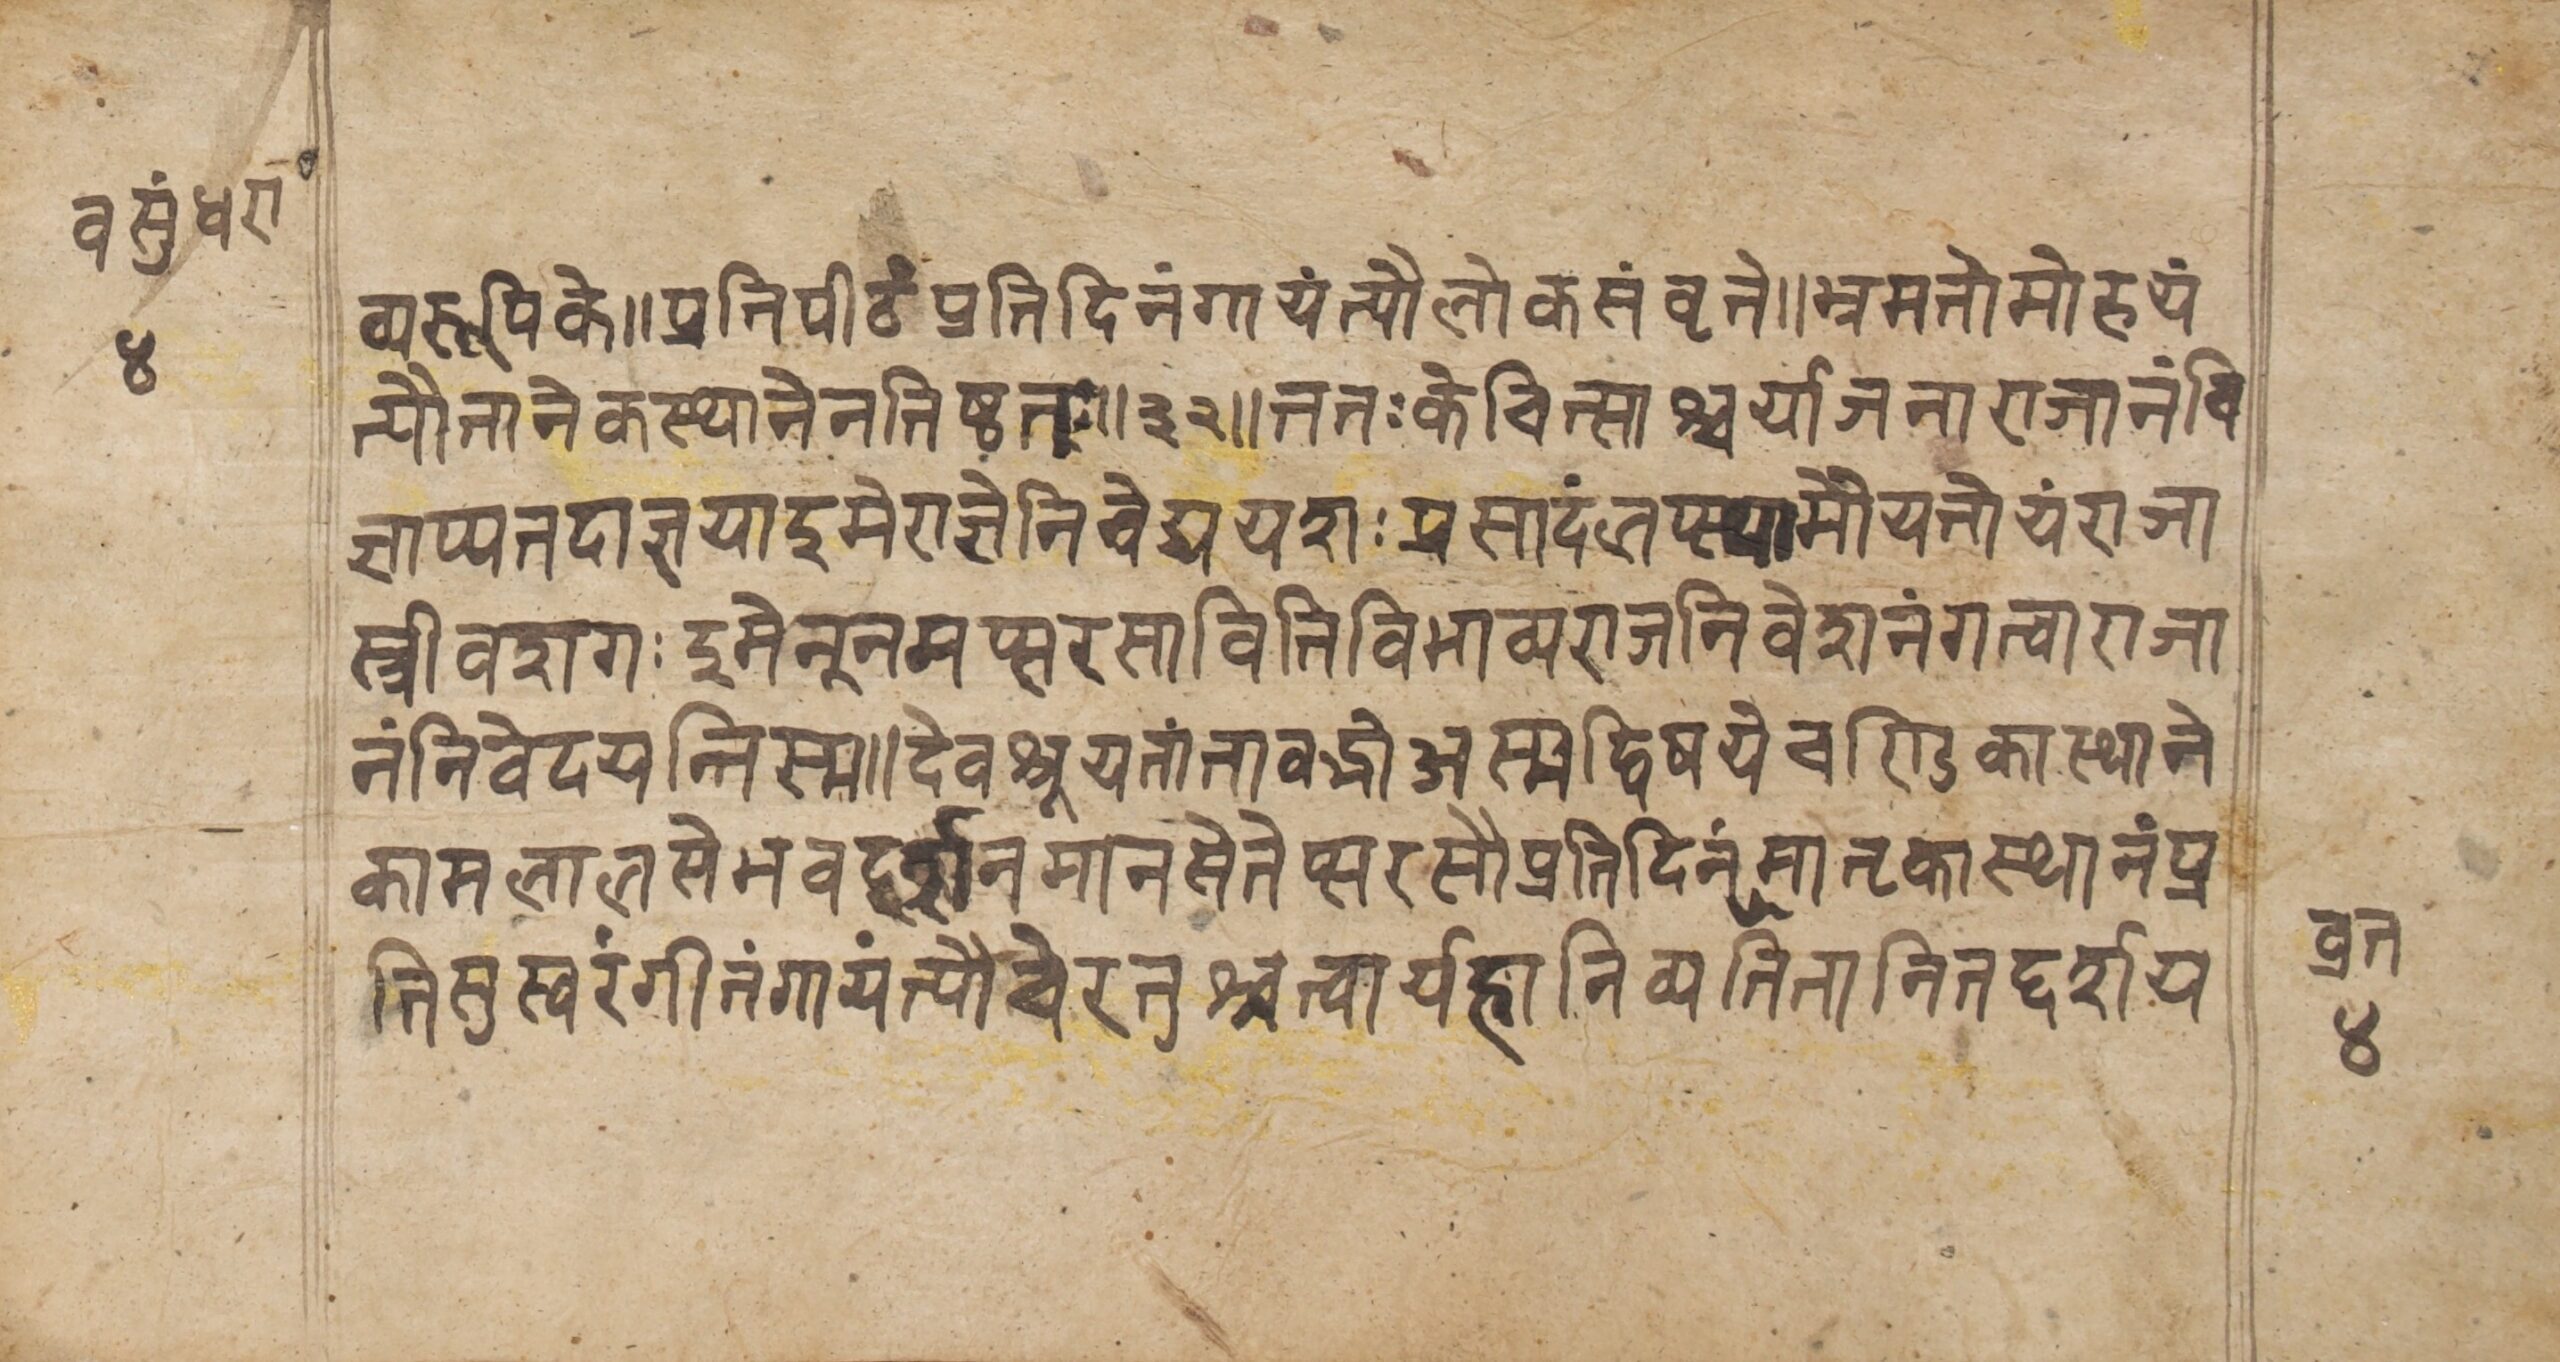 वसुंधरा
४
व्यरूपिके॥प्रतिपीठंप्रतिदिनंगायंत्यौलोकसंवृते॥भ्रमतोमोहयं
त्यौतानेकस्थानेनतिष्ठतः॥३२॥ततःकेचित्साश्चर्याजनाराजानंवि
ज्ञाप्यतदाज्ञयाइमेराज्ञेनिवेद्ययशःप्रसादंलप्स्यामोयतोयंराजा
स्त्रीवशगःइमेनूनमप्सरसावितिविभाव्यराजनिवेशनंगत्वाराजा
नंनिवेदयन्तिस्म॥देवश्रूयतांतावद्भोअस्मद्विषयेचण्डिकास्थाने
कामलालसेभवद्दर्शनमानसेतेप्सरसौप्रतिदिनंमातृकास्थानंप्र
तिसुस्वरंगीतंगायंत्यौचेरतुश्चत्वार्यहानिव्यतितानितद्दर्शय
व्रत
४